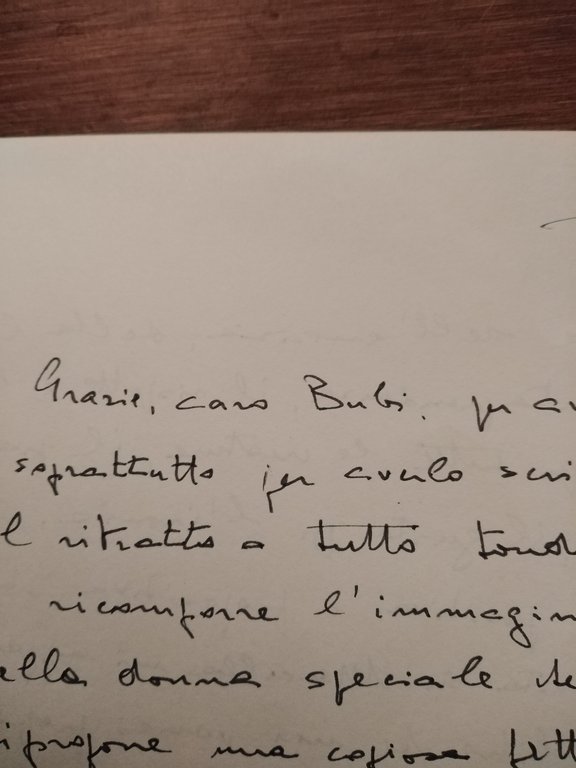 Grazie, caro Bubi, per av
soprattutto per averlo scri
l ritratto a tutto tond
ricomporre l'immagin
ella donna speciale
ipropone una copiosa fitt